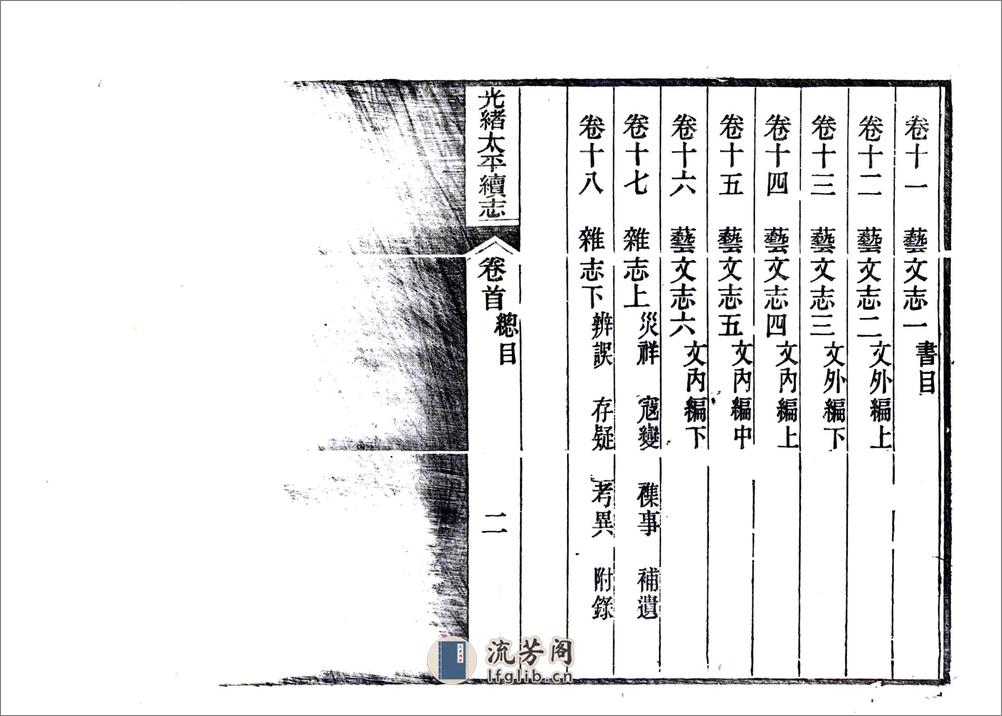 卷十一 藝文志一 書目
卷十二 藝文志二 文外編上
卷十三 藝文志三 文外編下
卷十四 藝文志四 文內編上
卷十五 藝文志五 文內編中
卷十六 藝文志六 文內編下
卷十七 雜志上 災祥 寇變 襍事 補遺
卷十八 雜志下 辨誤 存疑 考異 附錄
光緒太平續志 卷首 總目 二
流芳阁
lfglib.cn